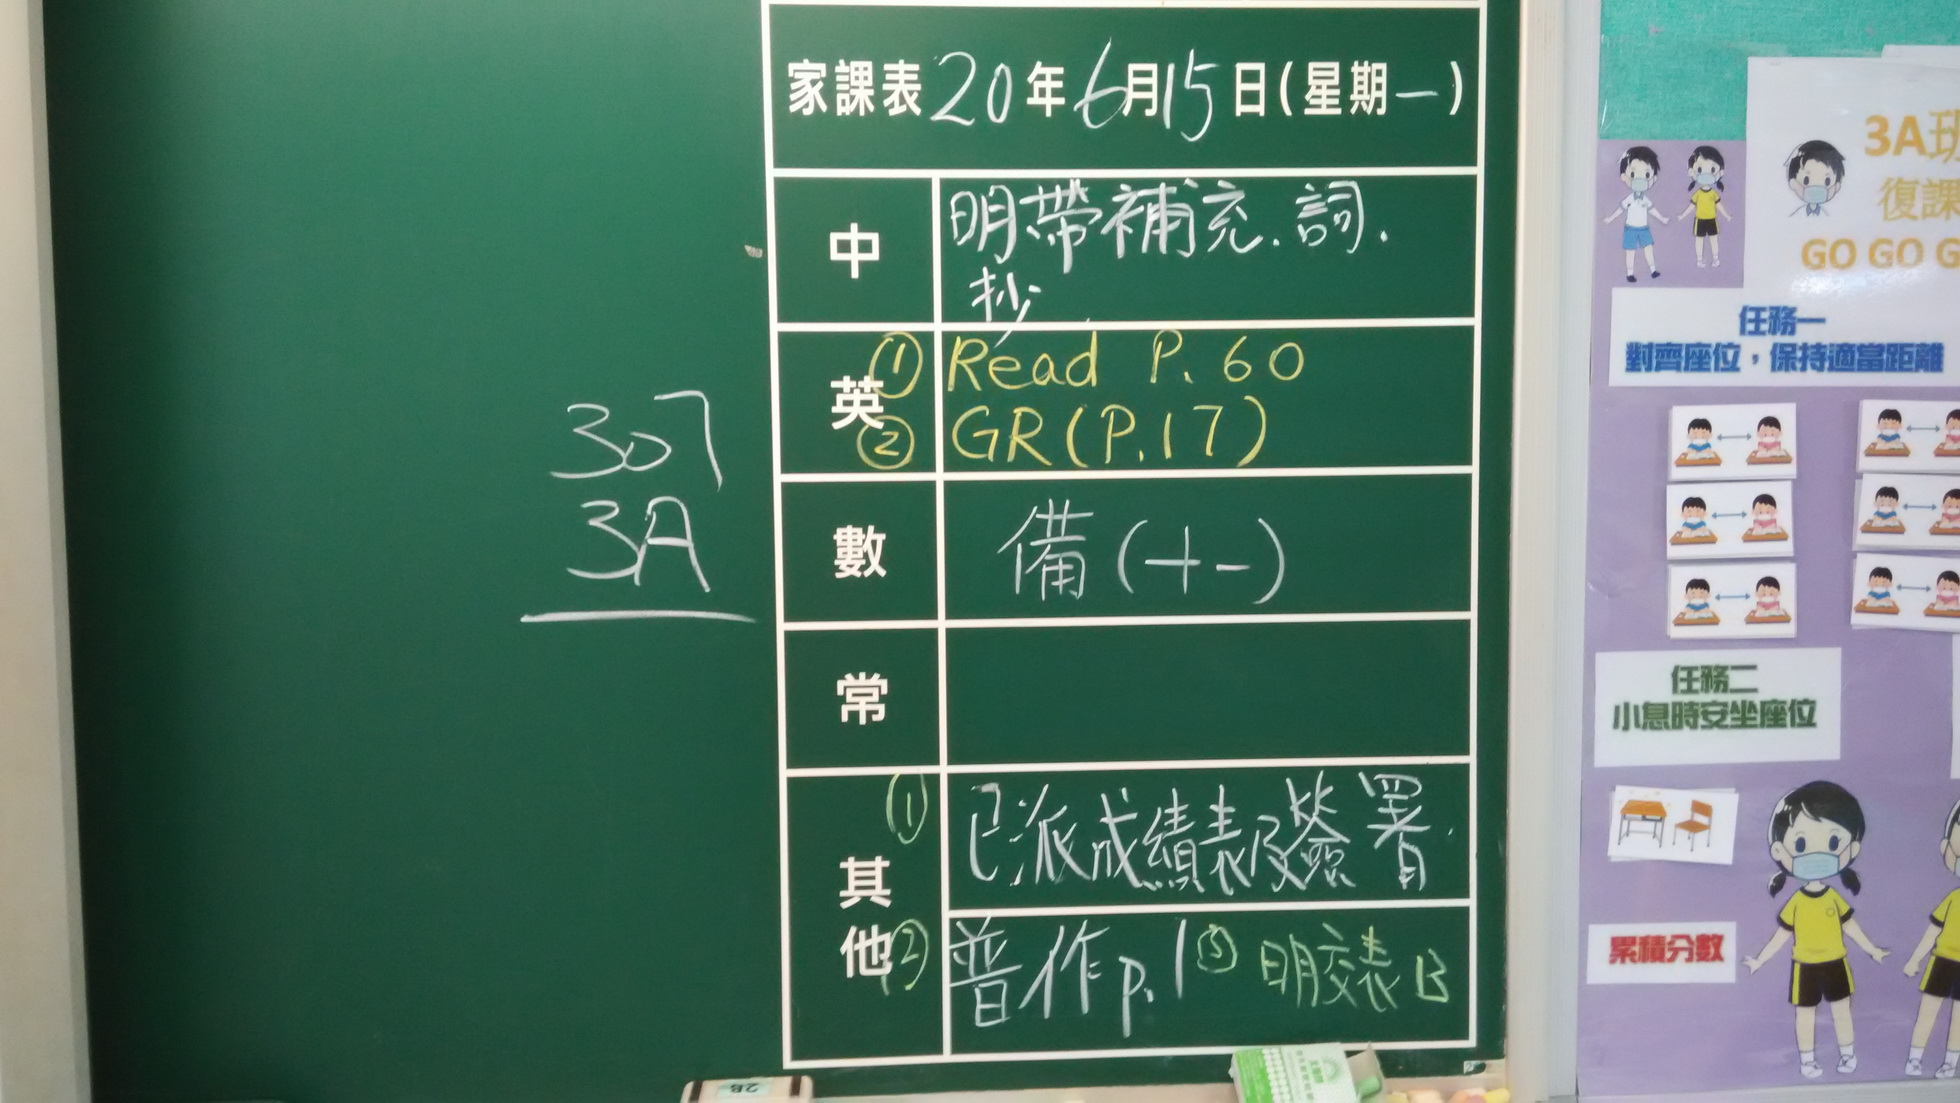 家課表20年6月15日(星期一)
中
明帶補充.詞.
抄
英
① Read P.60
② GR(P.17)
數
備(+-)
常
其他
① 已派成績表及簽署.
② 普作p.1 ③ 明交表B
307
3A
3A班
復課
GO GO G
任務一
對齊座位，保持適當距離
任務二
小息時安坐座位
累積分數
2B